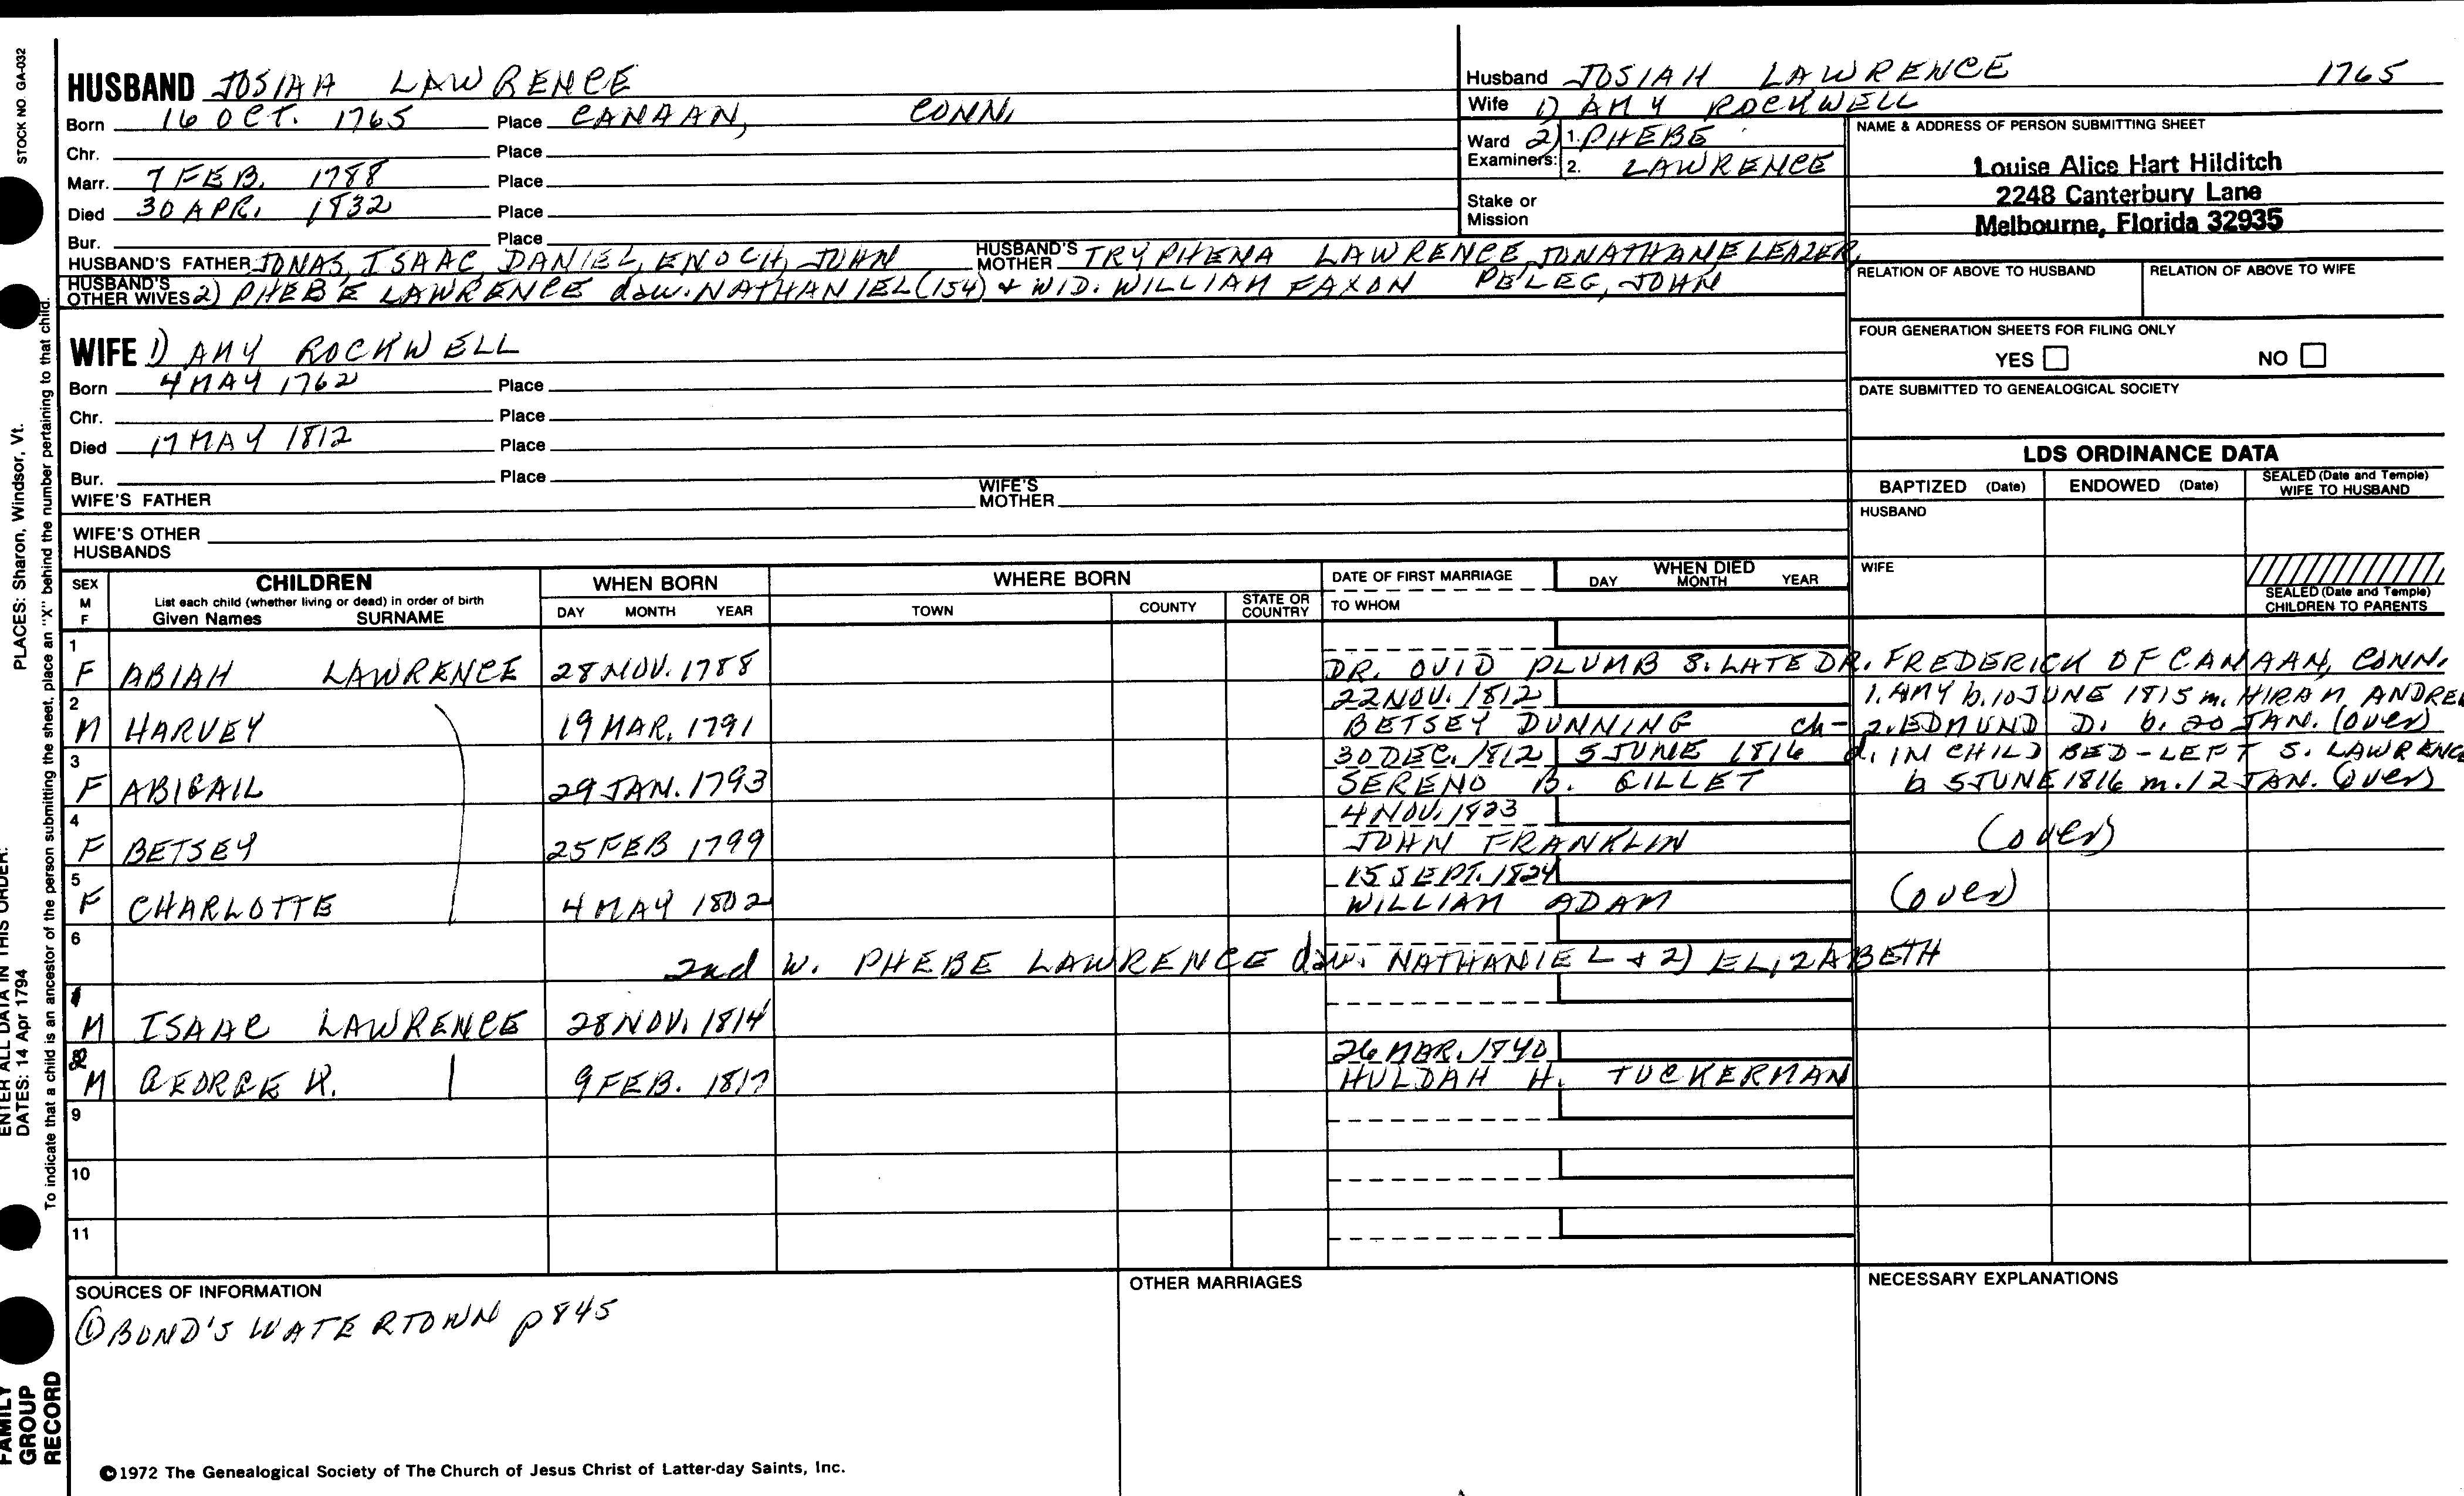 STOCK NO. GA-032
PLACES: Sharon, Windsor, Vt.
ENTER ALL DATA IN THIS ORDER:
DATES: 14 Apr 1794
To indicate that a child is an ancestor of the person submitting the sheet, place an "X" behind the number pertaining to that child.
FAMILY
GROUP
RECORD
HUSBAND JOSIAH LAWRENCE
Born 16 OCT. 1765 Place CANAAN, CONN.
Chr. Place
Marr. 7 FEB. 1788 Place
Died 30 APR. 1832 Place
Bur. Place
HUSBAND'S FATHER JONAS, ISAAC, DANIEL, ENOCH, JOHN HUSBAND'S MOTHER TRYPHENA LAWRENCE JONATHAN ELEAZER,
HUSBAND'S OTHER WIVES 2) PHEBE LAWRENCE daw. NATHANIEL (154) & WID. WILLIAM FAXON PELEG, JOHN
WIFE 1) AMY ROCKWELL
Born 4 MAY 1762 Place
Chr. Place
Died 17 MAY 1812 Place
Bur. Place
WIFE'S FATHER WIFE'S MOTHER
WIFE'S OTHER HUSBANDS
Husband JOSIAH LAWRENCE 1765
Wife 1) AMY ROCKWELL
Ward Examiners: 2) 1. PHEBE
2. LAWRENCE
Stake or Mission
NAME & ADDRESS OF PERSON SUBMITTING SHEET
Louise Alice Hart Hilditch
2248 Canterbury Lane
Melbourne, Florida 32935
RELATION OF ABOVE TO HUSBAND RELATION OF ABOVE TO WIFE
FOUR GENERATION SHEETS FOR FILING ONLY
YES NO
DATE SUBMITTED TO GENEALOGICAL SOCIETY
LDS ORDINANCE DATA
BAPTIZED (Date) ENDOWED (Date) SEALED (Date and Temple) WIFE TO HUSBAND
HUSBAND
WIFE
SEALED (Date and Temple) CHILDREN TO PARENTS
SEX M F CHILDREN WHEN BORN WHERE BORN DATE OF FIRST MARRIAGE WHEN DIED
List each child (whether living or dead) in order of birth
Given Names SURNAME DAY MONTH YEAR TOWN COUNTY STATE OR COUNTRY TO WHOM DAY MONTH YEAR
1
F ABIAH LAWRENCE 28 NOV. 1788 DR. OVID PLUMB S. LATE DR. FREDERICK OF CANAAN, CONN.
2 22 NOV. 1812 1. AMY b. 10 JUNE 1815 m. HIRAM ANDREW
M HARVEY 19 MAR. 1791 BETSEY DUNNING ch- 2. EDMUND D. b. 20 JAN. (over)
3 30 DEC. 1812 5 JUNE 1816 d. IN CHILD BED - LEFT S. LAWRENCE
F ABIGAIL 29 JAN. 1793 SERENO B. GILLET b 5 JUNE 1816 m. 12 JAN. (over)
4 4 NOV. 1823
F BETSEY 25 FEB 1799 JOHN FRANKLIN (over)
5 15 SEPT. 1824
F CHARLOTTE 4 MAY 1802 WILLIAM ADAM (over)
6
2nd W. PHEBE LAWRENCE daw. NATHANIEL & 2) ELIZABETH
1
M ISAAC LAWRENCE 28 NOV. 1814
2 26 MAR. 1840
M GEORGE H. 9 FEB. 1817 HULDAH H. TUCKERMAN
9
10
11
SOURCES OF INFORMATION OTHER MARRIAGES NECESSARY EXPLANATIONS
① BOND'S WATERTOWN p845
©1972 The Genealogical Society of The Church of Jesus Christ of Latter-day Saints, Inc.